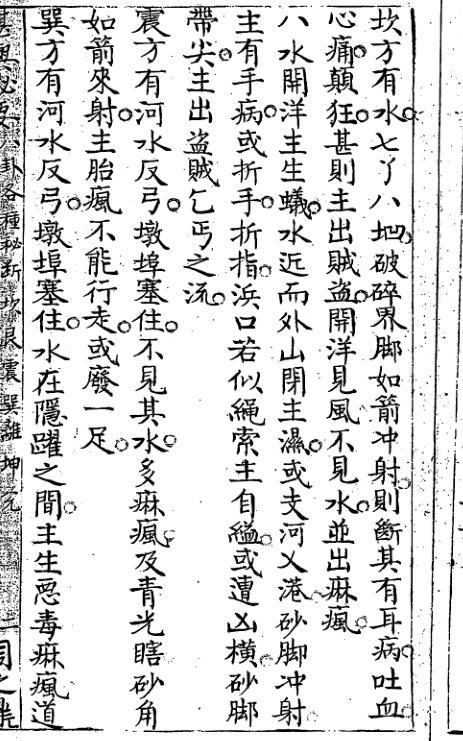 坎方有水。七丫八㘭。破碎界脚如箭冲射。則斷其有耳病。吐血
心痛。顛狂。甚則主出賊盜。開洋見風不見水。並出痳瘋。
八水開洋主生蟻。水近而外山閉主濕。或支河乂港。砂脚冲射。
主有手病。或折手折指。浜口若似繩索主自縊。或遭凶橫。砂脚
帶尖。主出盜賊乞丐之流。
震方有河水反弓。墩埠塞住。不見其水。多痳瘋。及青光瞎。砂角
如箭來射。主胎瘋不能行走。或廢一足。
巽方有河水反弓。墩埠塞住。水在隱躍之間。主生惡毒痳瘋。道
八卦各種秘斷坎艮震巽離坤兌